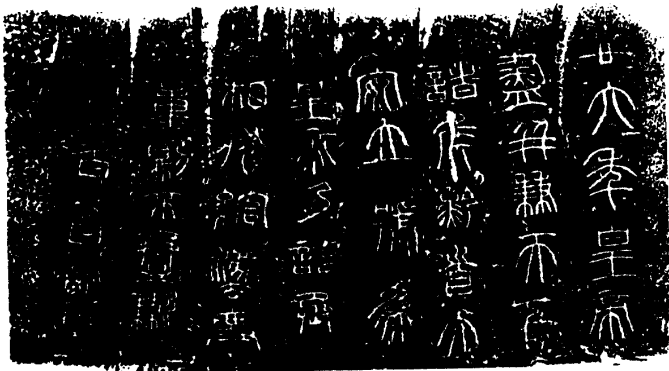 廿六年皇帝
盡并兼天下
諸侯黔首大
安立號為
皇帝乃詔丞
相狀綰法度
量則不壹歉
者皆明